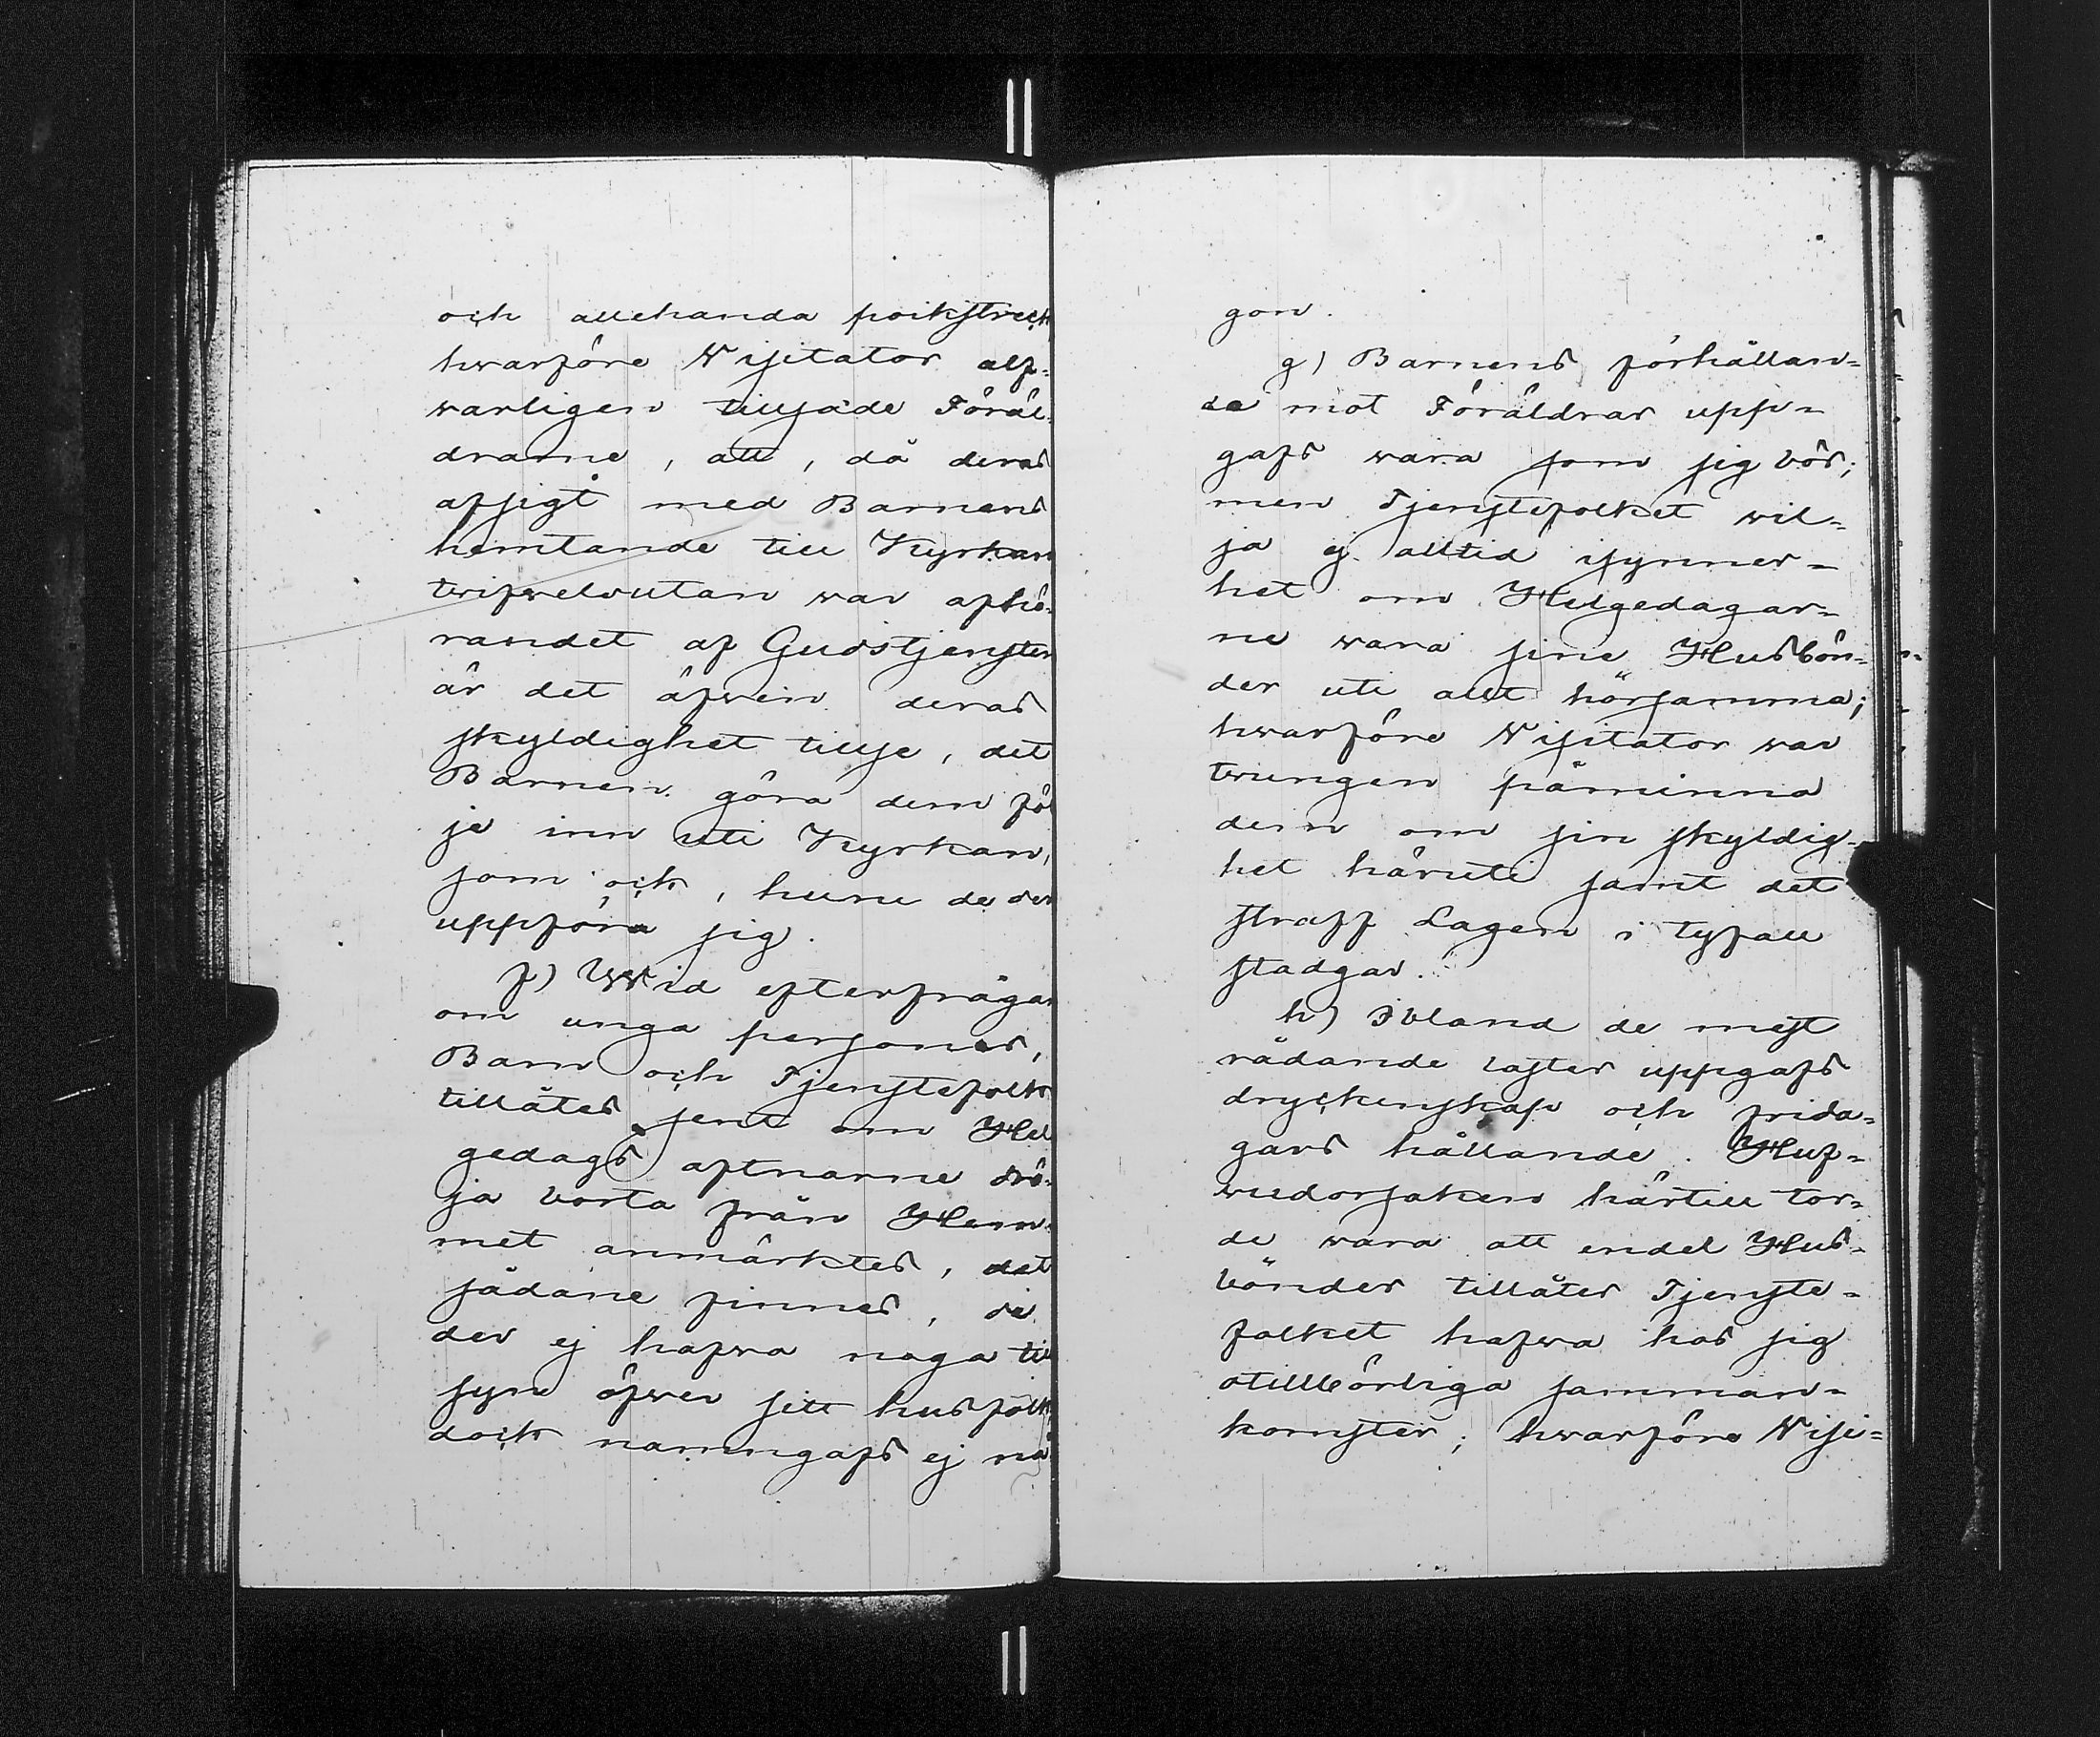 och allehanda poikstreck
hwarföre Visitator alf-
warligen tillsade Föräl-
drarne, att, då deras
afsigt med Barnens
hemtande till Kyrkan
twifwelsutan war afhö-
randet af Gudstjensten
är det äfwen deras
skyldighet tillse, det
Barnen göra dem föl
je inn uti Kyrkan,
som ock, huru de der
uppföra sig.
f) Wid efterfrågan
om unga persones,
Barn och Tjenstefolk
tillåtes sent om Hel
gedags aftnarne drö-
ja borta från Hem-
met anmärktes, det
sådane finnes, de
der ej hafwa noga till
syn öfwer sitt husfolk
dock namngafs ej nå
gon.
g) Barnens förhållan-
de mot Föräldrar upp-
gafs wara som sig bör;
men Tjenstefolket wil-
ja ej alltid isynner-
het om Helgedagar-
ne wara sine Husbön-
der uti allt hörsamma;
hwarföre Visitator war
twungen påminna
dem om sin skyldig-
het häruti samt det
straff Lagen i tyfall
stadgar.
h) Ibland de mest
rådande laster uppgafs
dryckenskap och frida-
gars hållande. Huf-
wudorsaken härtill tor-
de wara att endel Hus-
bönder tillåter Tjenste-
folket hafwa hos sig
otillbörliga samman-
komster; hwarföre Visi-